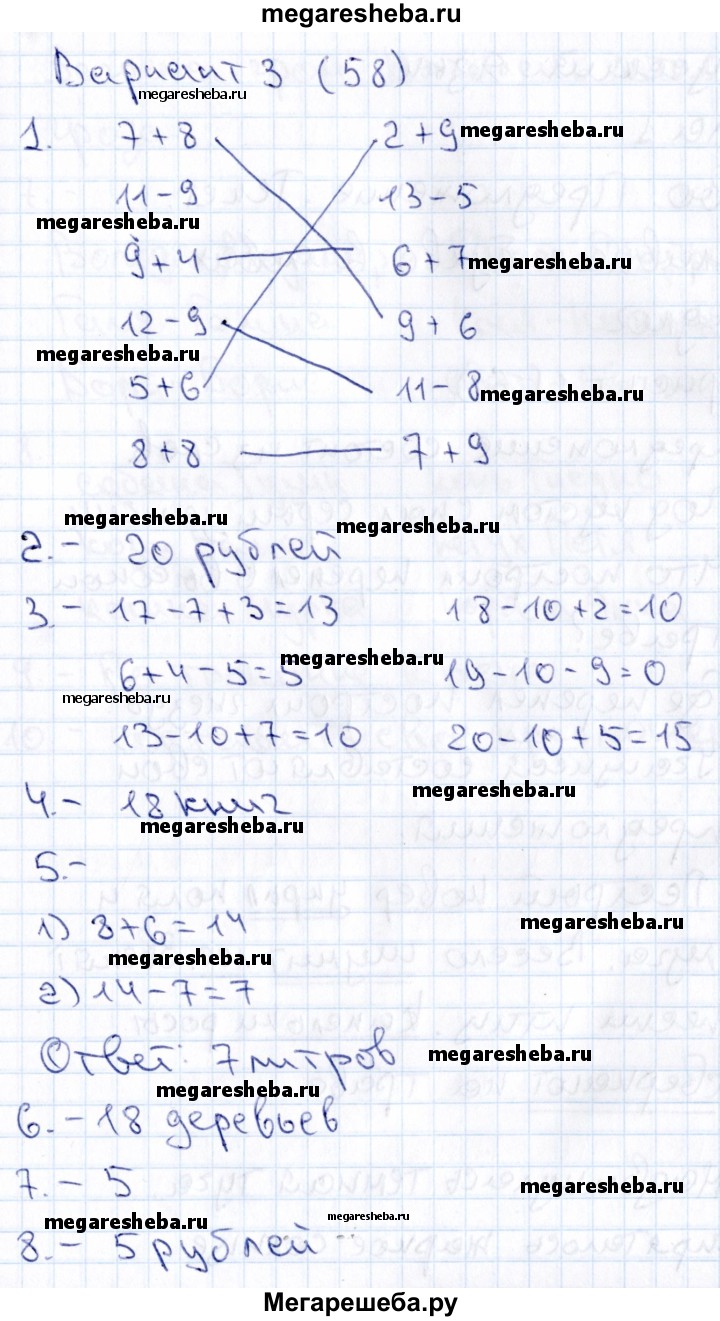 megaresheba.ru
Вариант 3 (58)
megaresheba.ru
1. 7+8 2+9 megaresheba.ru
11-9 13-5
megaresheba.ru
9+4 6+7 megaresheba.ru
12-9 9+6
megaresheba.ru
5+6 11-8 megaresheba.ru
8+8 7+9
megaresheba.ru megaresheba.ru
2.- 20 рублей
3.- 17-7+3=13 18-10+2=10
megaresheba.ru
6+4-5=5 19-10-9=0
megaresheba.ru
13-10+7=10 20-10+5=15
megaresheba.ru
4.- 18 книг
megaresheba.ru
5.-
1) 8+6=14 megaresheba.ru
megaresheba.ru
2) 14-7=7
Ответ: 7 литров megaresheba.ru
megaresheba.ru
6.- 18 деревьев
7.- 5 megaresheba.ru
megaresheba.ru megaresheba.ru
8.- 5 рублей
Мегарешеба.ру